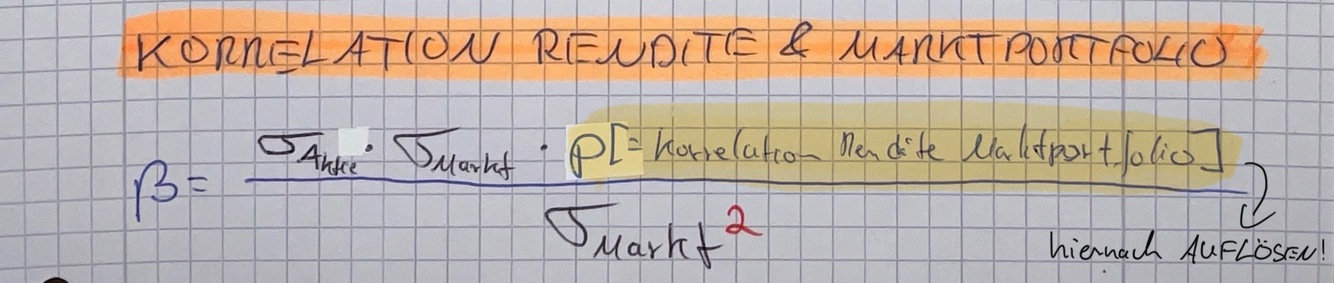 KORRELATION RENDITE & MARKTPORTFOLIO
β = σAktie · σMarkt · ρ[= Korrelation Rendite Marktportfolio]
σMarkt²
hiernach AUFLÖSEN!